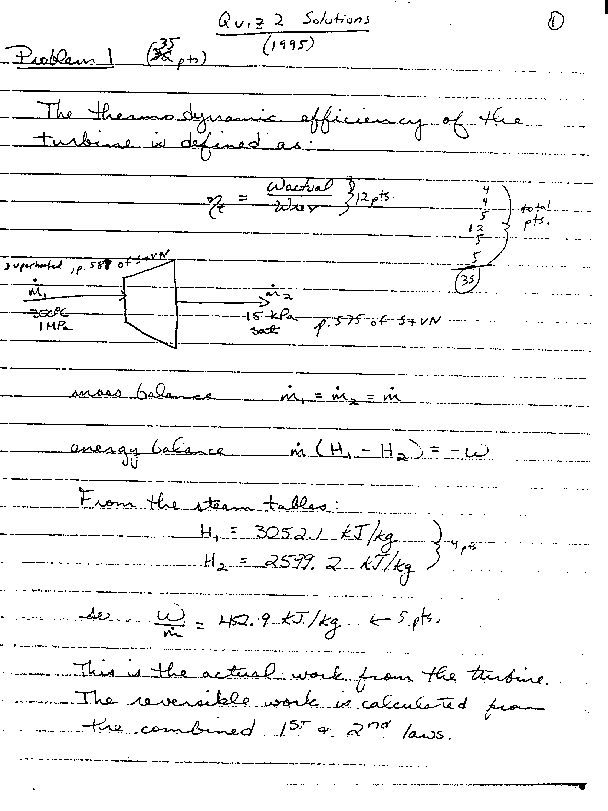 Quiz 2 Solutions
(1995)
①
Problem 1 (35 pts)
The thermodynamic efficiency of the
turbine is defined as:
η = Wactual / Wrev } 12 pts.
4
4
5
12
5
5
35
total
pts.
superheated, p. 587 of S+VN
ṁ₁
300°C
1 MPa
ṁ₂
15 kPa
sat
p. 575 of S+VN
mass balance ṁ₁ = ṁ₂ = ṁ
energy balance ṁ (H₁ - H₂) = -W
From the steam tables:
H₁ = 3052.1 kJ/kg
H₂ = 2599.2 kJ/kg } 4 pts
so W/ṁ = 452.9 kJ/kg ← 5 pts.
This is the actual work from the turbine.
The reversible work is calculated from
the combined 1ST & 2nd laws.